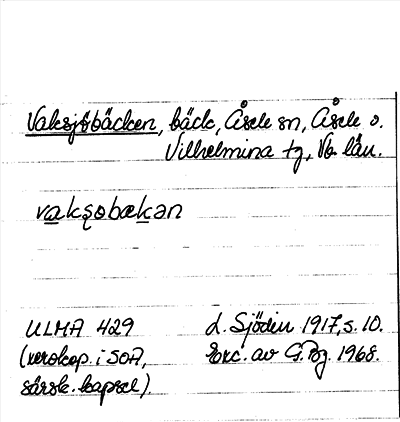 Vaksjöbäcken, bäck, Åsele sn, Åsele o.
Vilhelmina tg, Vb. län.
vaksǫbækan
ULMA 429
(xerokop. i SOA,
särsk. kapsel)
L. Sjödin 1917, s. 10.
Exc. av G. Pbg. 1968.